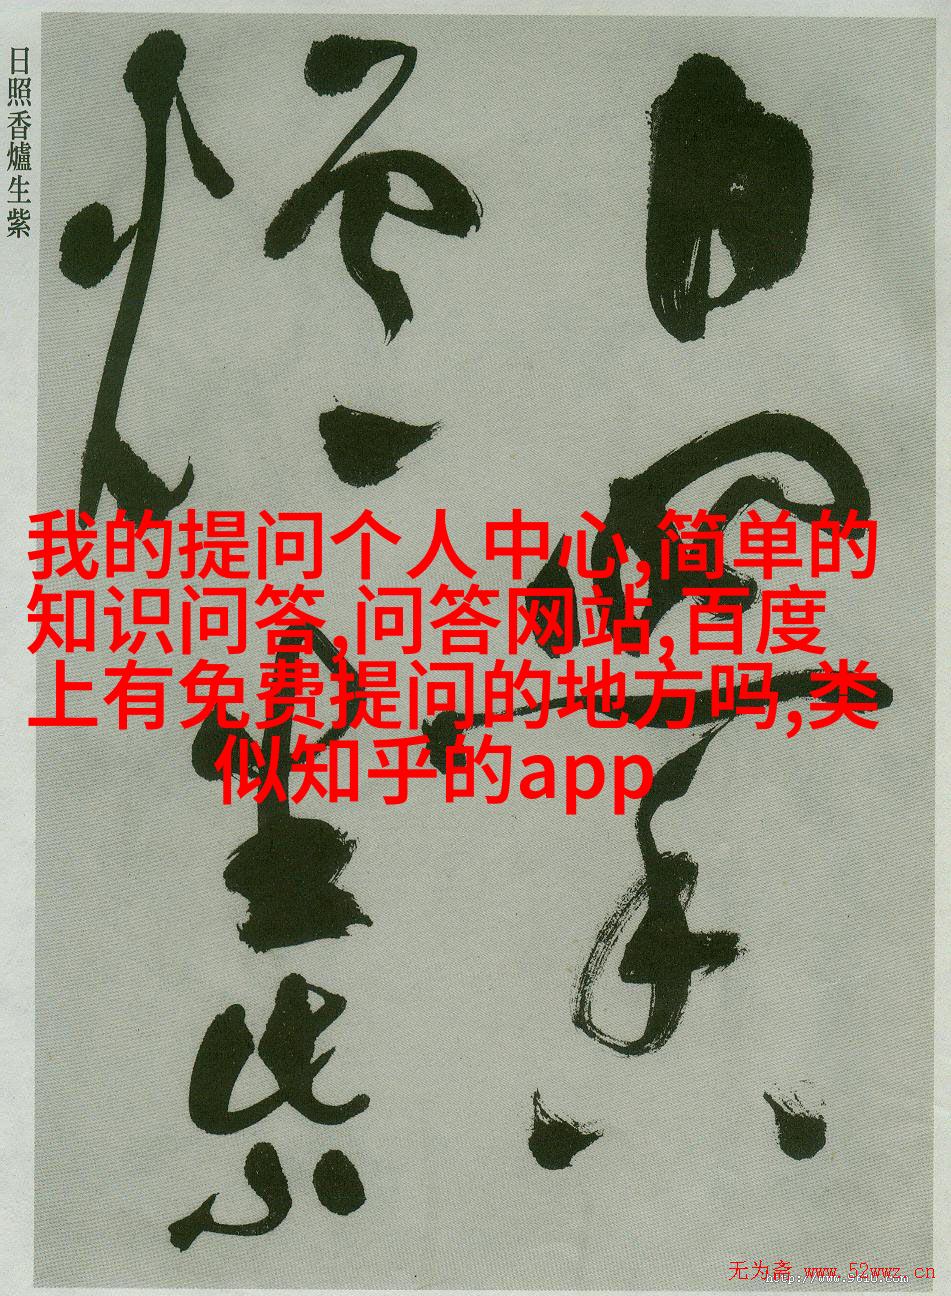 日照香爐生紫
日照香
爐生紫
我的提问个人中心,简单的
知识问答,问答网站,百度
上有免费提问的地方吗,类
似知乎的app
无为斋 www.52wwz.cn
http://www.9610.com